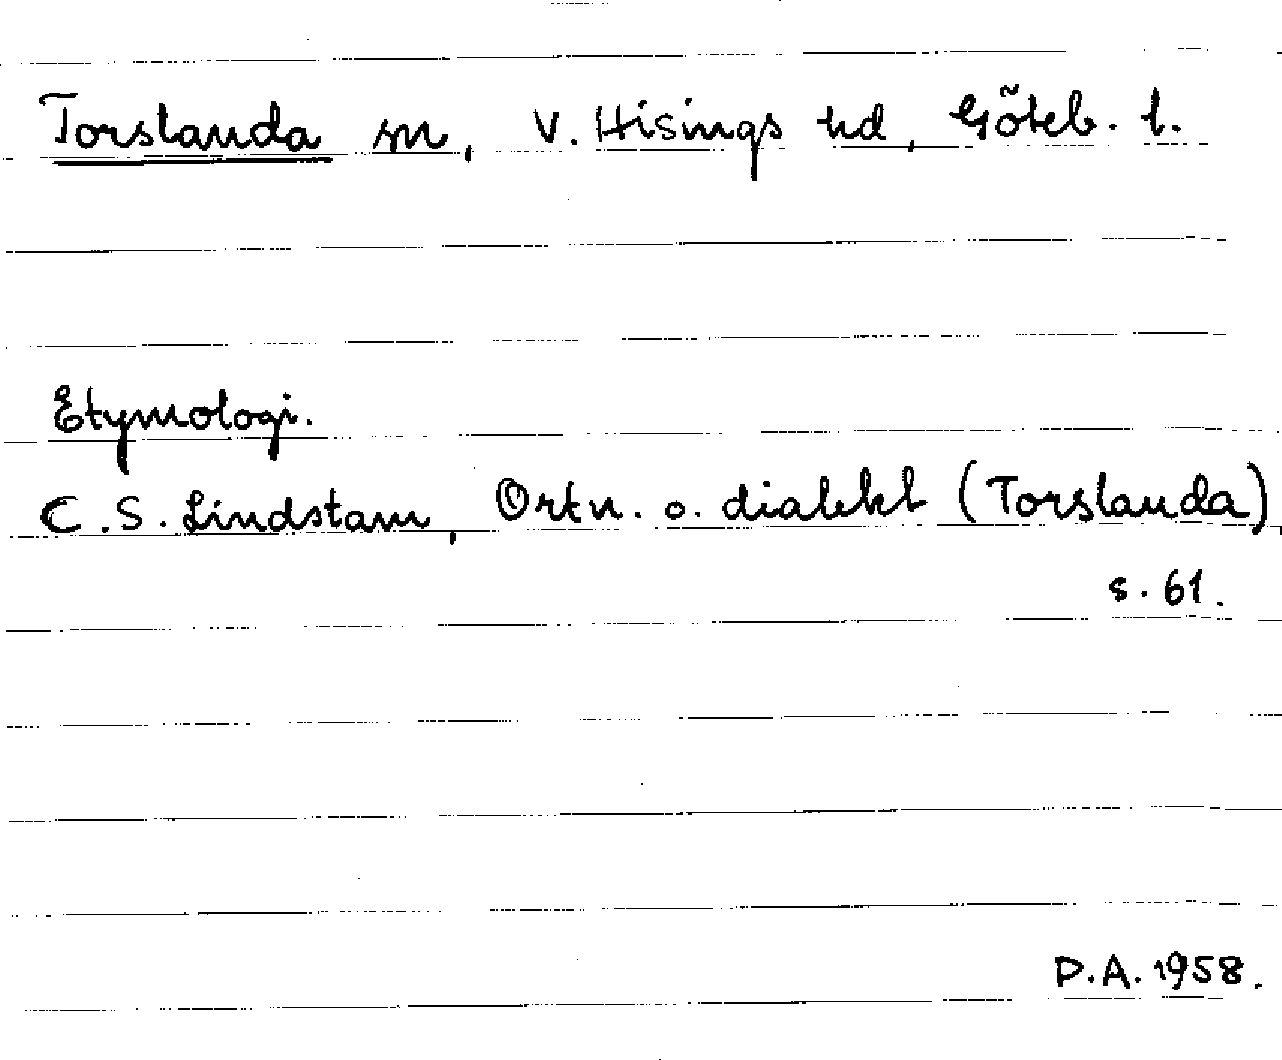 Torslanda sn, V. Hisings hd, Göteb. l.
Etymologi.
C.S. Lindstam, Ortn. o. dialekt (Torslanda),
s. 61.
D.A. 1958.